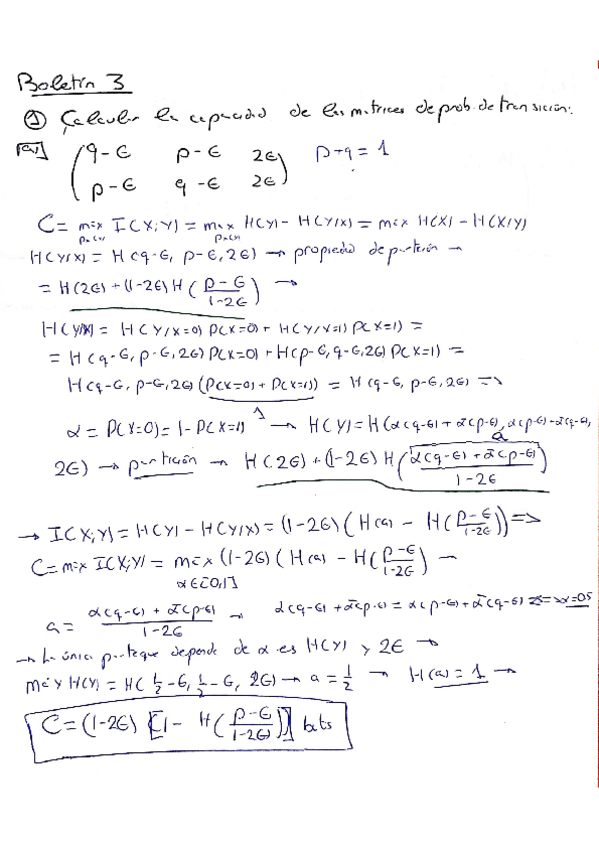 Boletín 3
① Calcular la capacidad de las matrices de prob. de transición:
[a] ( q-ϵ p-ϵ 2ϵ ) p+q=1
( p-ϵ q-ϵ 2ϵ )
C = máx I(X;Y) = máx H(Y) - H(Y/X) = máx H(X) - H(X/Y)
p(x) p(x)
H(Y/X) = H(q-ϵ, p-ϵ, 2ϵ) → propiedad de partición →
= H(2ϵ) + (1-2ϵ) H( (p-ϵ)/(1-2ϵ) ) →
H(Y/X) = H(Y/X=0) P(X=0) + H(Y/X=1) P(X=1) =
= H(q-ϵ, p-ϵ, 2ϵ) P(X=0) + H(p-ϵ, q-ϵ, 2ϵ) P(X=1) =
H(q-ϵ, p-ϵ, 2ϵ) (P(X=0) + P(X=1)) = H(q-ϵ, p-ϵ, 2ϵ) =>
1
α = P(X=0) = 1 - P(X=1) → H(Y) = H(α(q-ϵ) + ᾱ(p-ϵ), α(p-ϵ) + ᾱ(q-ϵ),
a
2ϵ) → partición → H(2ϵ) + (1-2ϵ) H( (α(q-ϵ) + ᾱ(p-ϵ))/(1-2ϵ) )
→ I(X;Y) = H(Y) - H(Y/X) = (1-2ϵ) ( H(a) - H( (p-ϵ)/(1-2ϵ) ) ) =>
C = máx I(X;Y) = máx (1-2ϵ) ( H(a) - H( (p-ϵ)/(1-2ϵ) ) →
α∈[0,1]
a = (α(q-ϵ) + ᾱ(p-ϵ))/(1-2ϵ) → α(q-ϵ) + ᾱ(p-ϵ) = α(p-ϵ) + ᾱ(q-ϵ) => α=0.5
→ La única parte que depende de α es H(Y) y 2ϵ →
máx H(Y) = H(1/2-ϵ, 1/2-ϵ, 2ϵ) → a = 1/2 → H(a) = 1 →
C = (1-2ϵ) [1 - H( (p-ϵ)/(1-2ϵ) )] bits